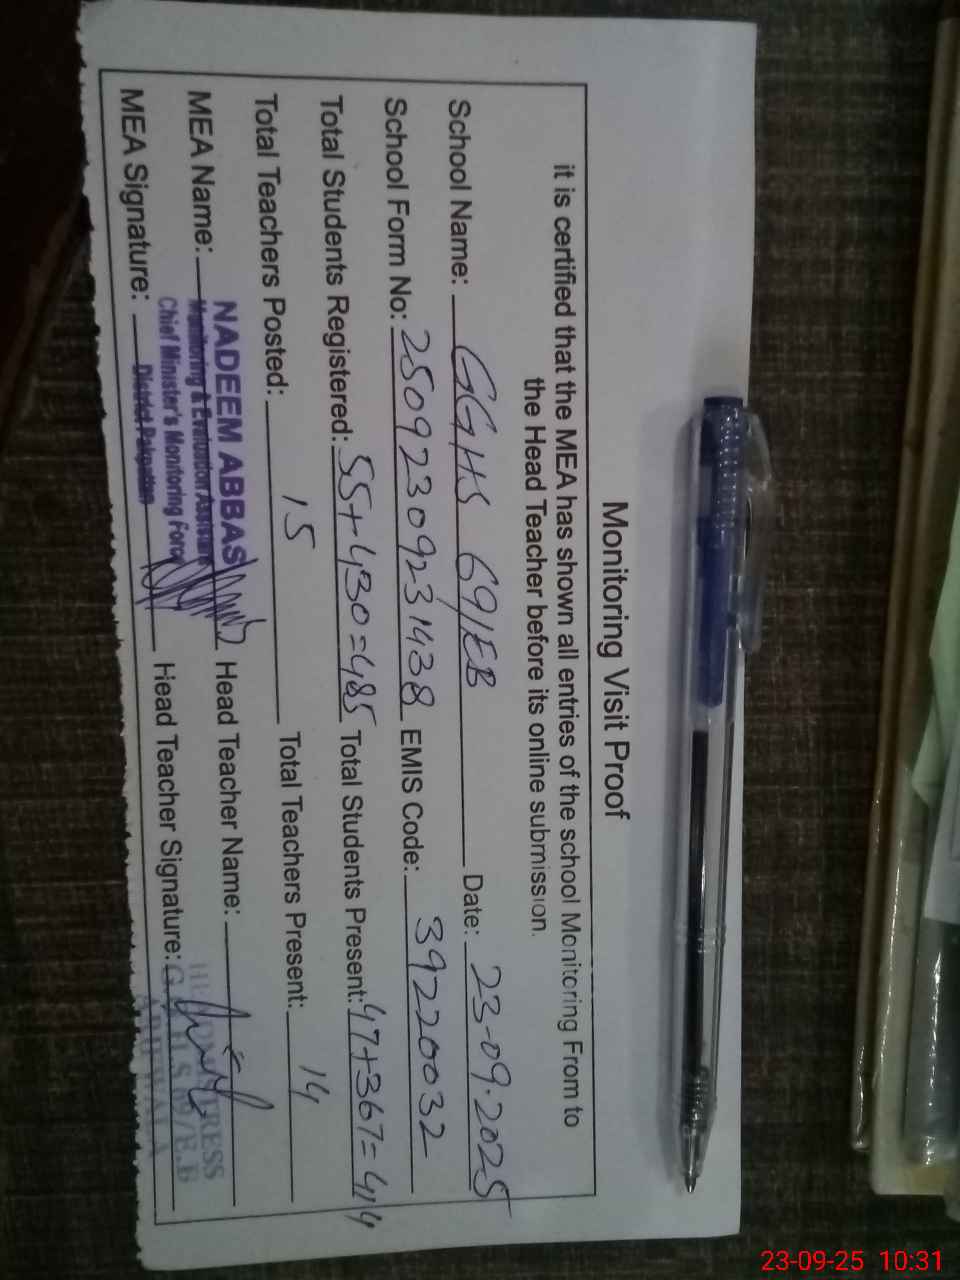 Monitoring Visit Proof
it is certified that the MEA has shown all entries of the school Monitoring From to
the Head Teacher before its online submission.
School Name: GGHS 69/EB Date: 23-09-2025
School Form No: 25092309231438 EMIS Code: 39220032
Total Students Registered: 55+430=485 Total Students Present: 47+367=414
Total Teachers Posted: 15 Total Teachers Present: 14
MEA Name: Head Teacher Name:
NADEEM ABBAS
Monitoring & Evaluation Assistant
Chief Minister's Monitoring Force
District Pakpattan
MEA Signature: Head Teacher Signature:
23-09-25 10:31